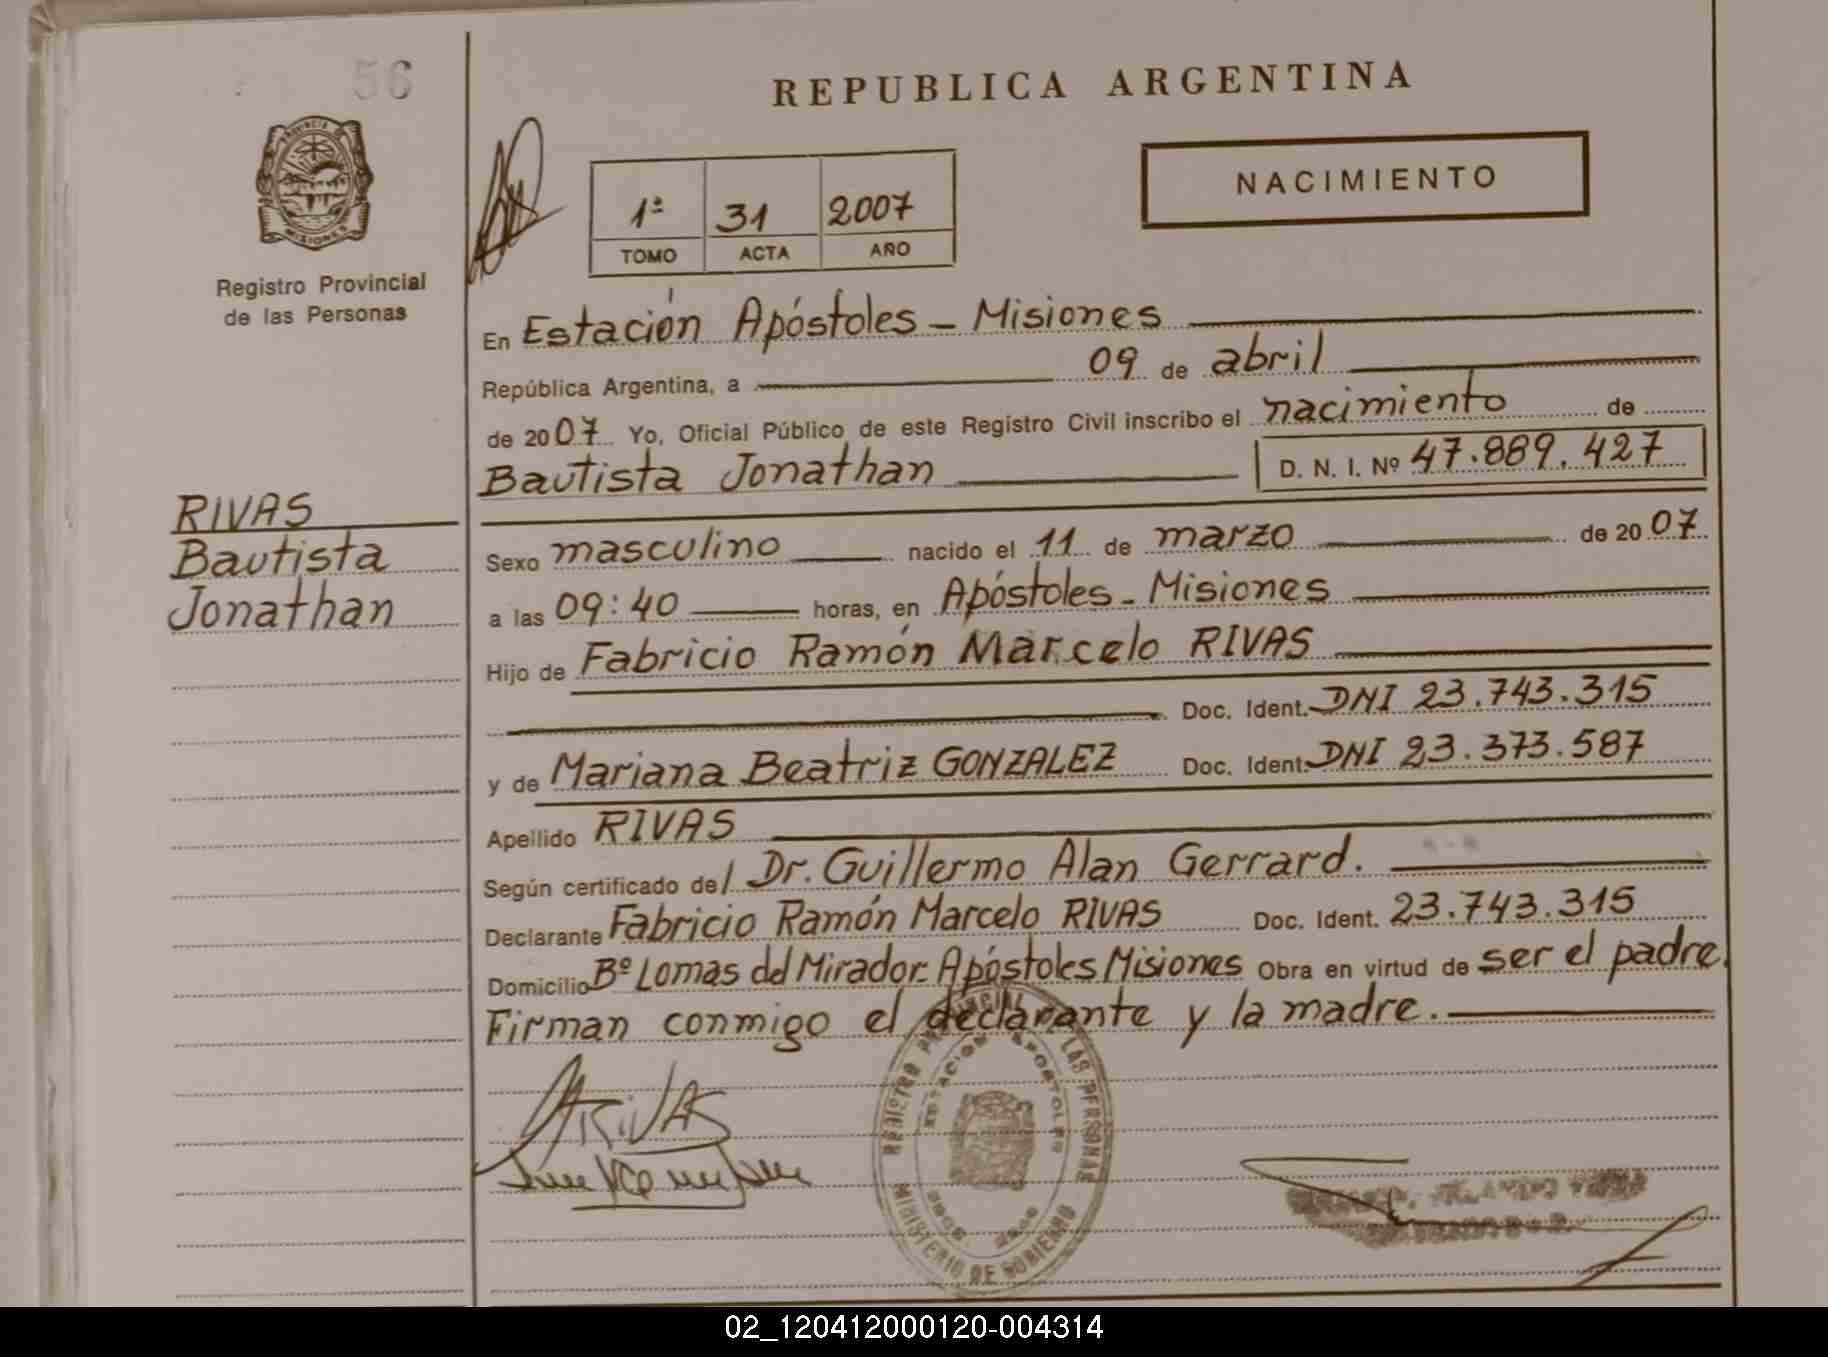 56
REPUBLICA ARGENTINA
PROVINCIA DE
MISIONES
NACIMIENTO
1ª 31 2007
TOMO ACTA AÑO
Registro Provincial
de las Personas
En Estación Apóstoles - Misiones
República Argentina, a 09 de abril
de 2007 Yo, Oficial Público de este Registro Civil inscribo el nacimiento de
Bautista Jonathan D. N. I. Nº 47.889.427
RIVAS
Bautista
Jonathan
Sexo masculino nacido el 11 de marzo de 2007
a las 09:40 horas, en Apóstoles - Misiones
Hijo de Fabricio Ramón Marcelo RIVAS
Doc. Ident. DNI 23.743.315
y de Mariana Beatriz GONZALEZ Doc. Ident. DNI 23.373.587
Apellido RIVAS
Según certificado del Dr. Guillermo Alan Gerrard.
Declarante Fabricio Ramón Marcelo RIVAS Doc. Ident. 23.743.315
Domicilio Bº Lomas del Mirador - Apóstoles Misiones Obra en virtud de ser el padre.
Firman conmigo el declarante y la madre.
RIVAS
REGISTRO PROVINCIAL DE LAS PERSONAS
ESTACION APOSTOLES
MINISTERIO DE GOBIERNO
02_120412000120-004314